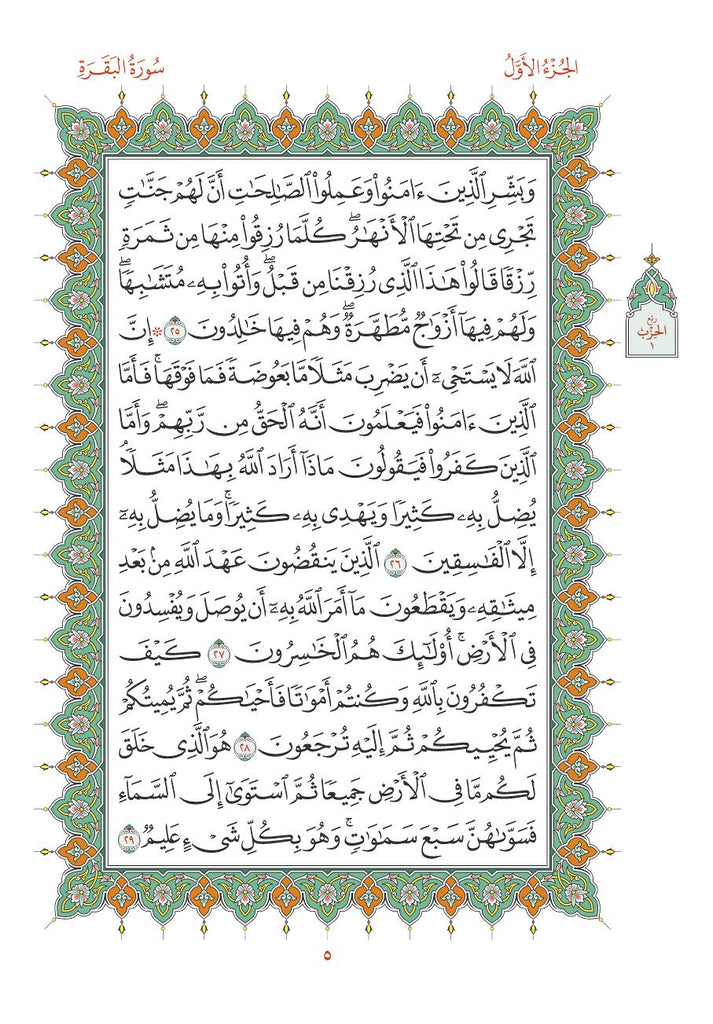 الجُزْءُ الأَوَّلُ
سُورَةُ البَقَرَةِ
وَبَشِّرِ ٱلَّذِينَ ءَامَنُوا۟ وَعَمِلُوا۟ ٱلصَّـٰلِحَـٰتِ أَنَّ لَهُمْ جَنَّـٰتٍ
تَجْرِى مِن تَحْتِهَا ٱلْأَنْهَـٰرُ ۖ كُلَّمَا رُزِقُوا۟ مِنْهَا مِن ثَمَرَةٍ
رِّزْقًا قَالُوا۟ هَـٰذَا ٱلَّذِى رُزِقْنَا مِن قَبْلُ ۖ وَأُتُوا۟ بِهِۦ مُتَشَـٰبِهًا ۖ
وَلَهُمْ فِيهَآ أَزْوَٰجٌ مُّطَهَّرَةٌ ۖ وَهُمْ فِيهَا خَـٰلِدُونَ ٢٥ * إِنَّ
ٱللَّهَ لَا يَسْتَحْىِۦٓ أَن يَضْرِبَ مَثَلًا مَّا بَعُوضَةً فَمَا فَوْقَهَا ۚ فَأَمَّا
ٱلَّذِينَ ءَامَنُوا۟ فَيَعْلَمُونَ أَنَّهُ ٱلْحَقُّ مِن رَّبِّهِمْ ۖ وَأَمَّا
ٱلَّذِينَ كَفَرُوا۟ فَيَقُولُونَ مَاذَآ أَرَادَ ٱللَّهُ بِهَـٰذَا مَثَلًا ۘ
يُضِلُّ بِهِۦ كَثِيرًا وَيَهْدِى بِهِۦ كَثِيرًا ۚ وَمَا يُضِلُّ بِهِۦٓ
إِلَّا ٱلْفَـٰسِقِينَ ٢٦ ٱلَّذِينَ يَنقُضُونَ عَهْدَ ٱللَّهِ مِنۢ بَعْدِ
مِيثَـٰقِهِۦ وَيَقْطَعُونَ مَآ أَمَرَ ٱللَّهُ بِهِۦٓ أَن يُوصَلَ وَيُفْسِدُونَ
فِى ٱلْأَرْضِ ۚ أُو۟لَـٰٓئِكَ هُمُ ٱلْخَـٰسِرُونَ ٢٧ كَيْفَ
تَكْفُرُونَ بِٱللَّهِ وَكُنتُمْ أَمْوَٰتًا فَأَحْيَـٰكُمْ ۖ ثُمَّ يُمِيتُكُمْ
ثُمَّ يُحْيِيكُمْ ثُمَّ إِلَيْهِ تُرْجَعُونَ ٢٨ هُوَ ٱلَّذِى خَلَقَ
لَكُم مَّا فِى ٱلْأَرْضِ جَمِيعًا ثُمَّ ٱسْتَوَىٰٓ إِلَى ٱلسَّمَآءِ
فَسَوَّىٰهُنَّ سَبْعَ سَمَـٰوَٰتٍ ۚ وَهُوَ بِكُلِّ شَىْءٍ عَلِيمٌ ٢٩
رُبع
الحِزْب
١
٥